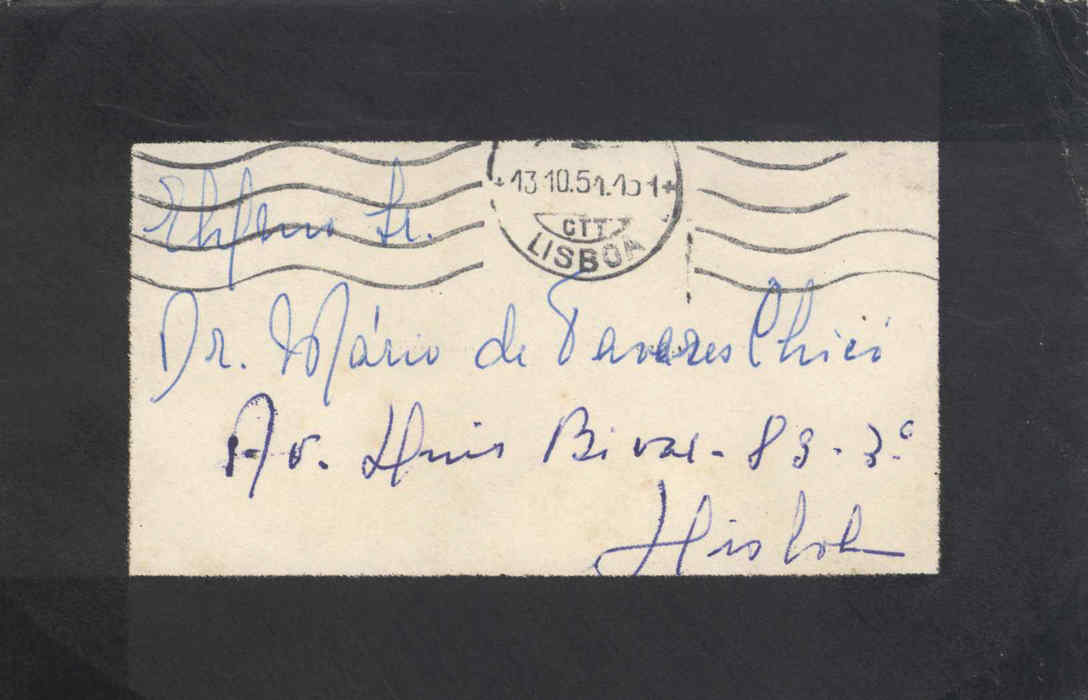 13 10.54.
CTT
LISBOA
Sr.
Dr. Mário de Tavares Chicó
Av. Luis Bivar - 83 - 3º
Lisboa